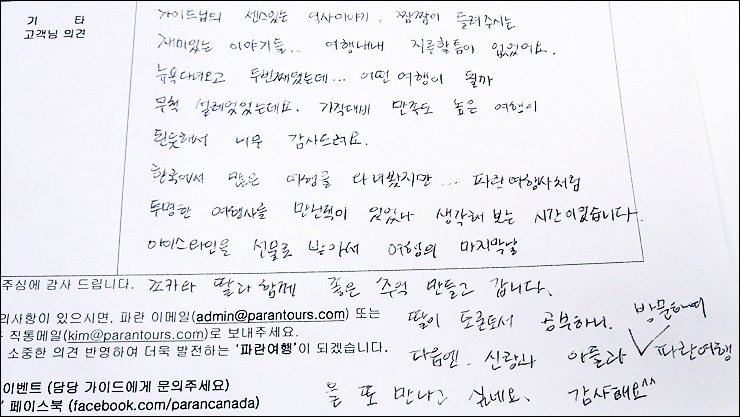 기 타
고객님 의견
가이드님의 센스있는 역사이야기, 짬짬이 들려주시는
재미있는 이야기들.. 여행내내 지루할틈이 없었어요.
뉴욕다녀오고 두번째였는데... 어떤 여행이 될까
무척 설레였었는데요. 가격대비 만족도 높은 여행이
된듯해서 너무 감사드려요.
한국에서 많은 여행을 다녀봤지만... 파란여행사처럼
투명한 여행사를 만난적이 있었나 생각해 보는 시간이였습니다.
아이스와인을 선물로 받아서 여행의 마지막날
주심에 감사 드립니다. 조카와 딸과 함께 좋은 추억 만들고 갑니다.
의사항이 있으시면, 파란 이메일(admin@parantours.com) 또는
직통메일(kim@parantours.com)로 보내주세요. 딸이 토론토서 공부하니. 방문하여
소중한 의견 반영하여 더욱 발전하는 '파란여행'이 되겠습니다. 다음엔. 신랑과 아들과 파란여행
이벤트 (담당 가이드에게 문의주세요) 을 또 만나고 싶네요. 감사해요^^
' 페이스북 (facebook.com/parancanada)